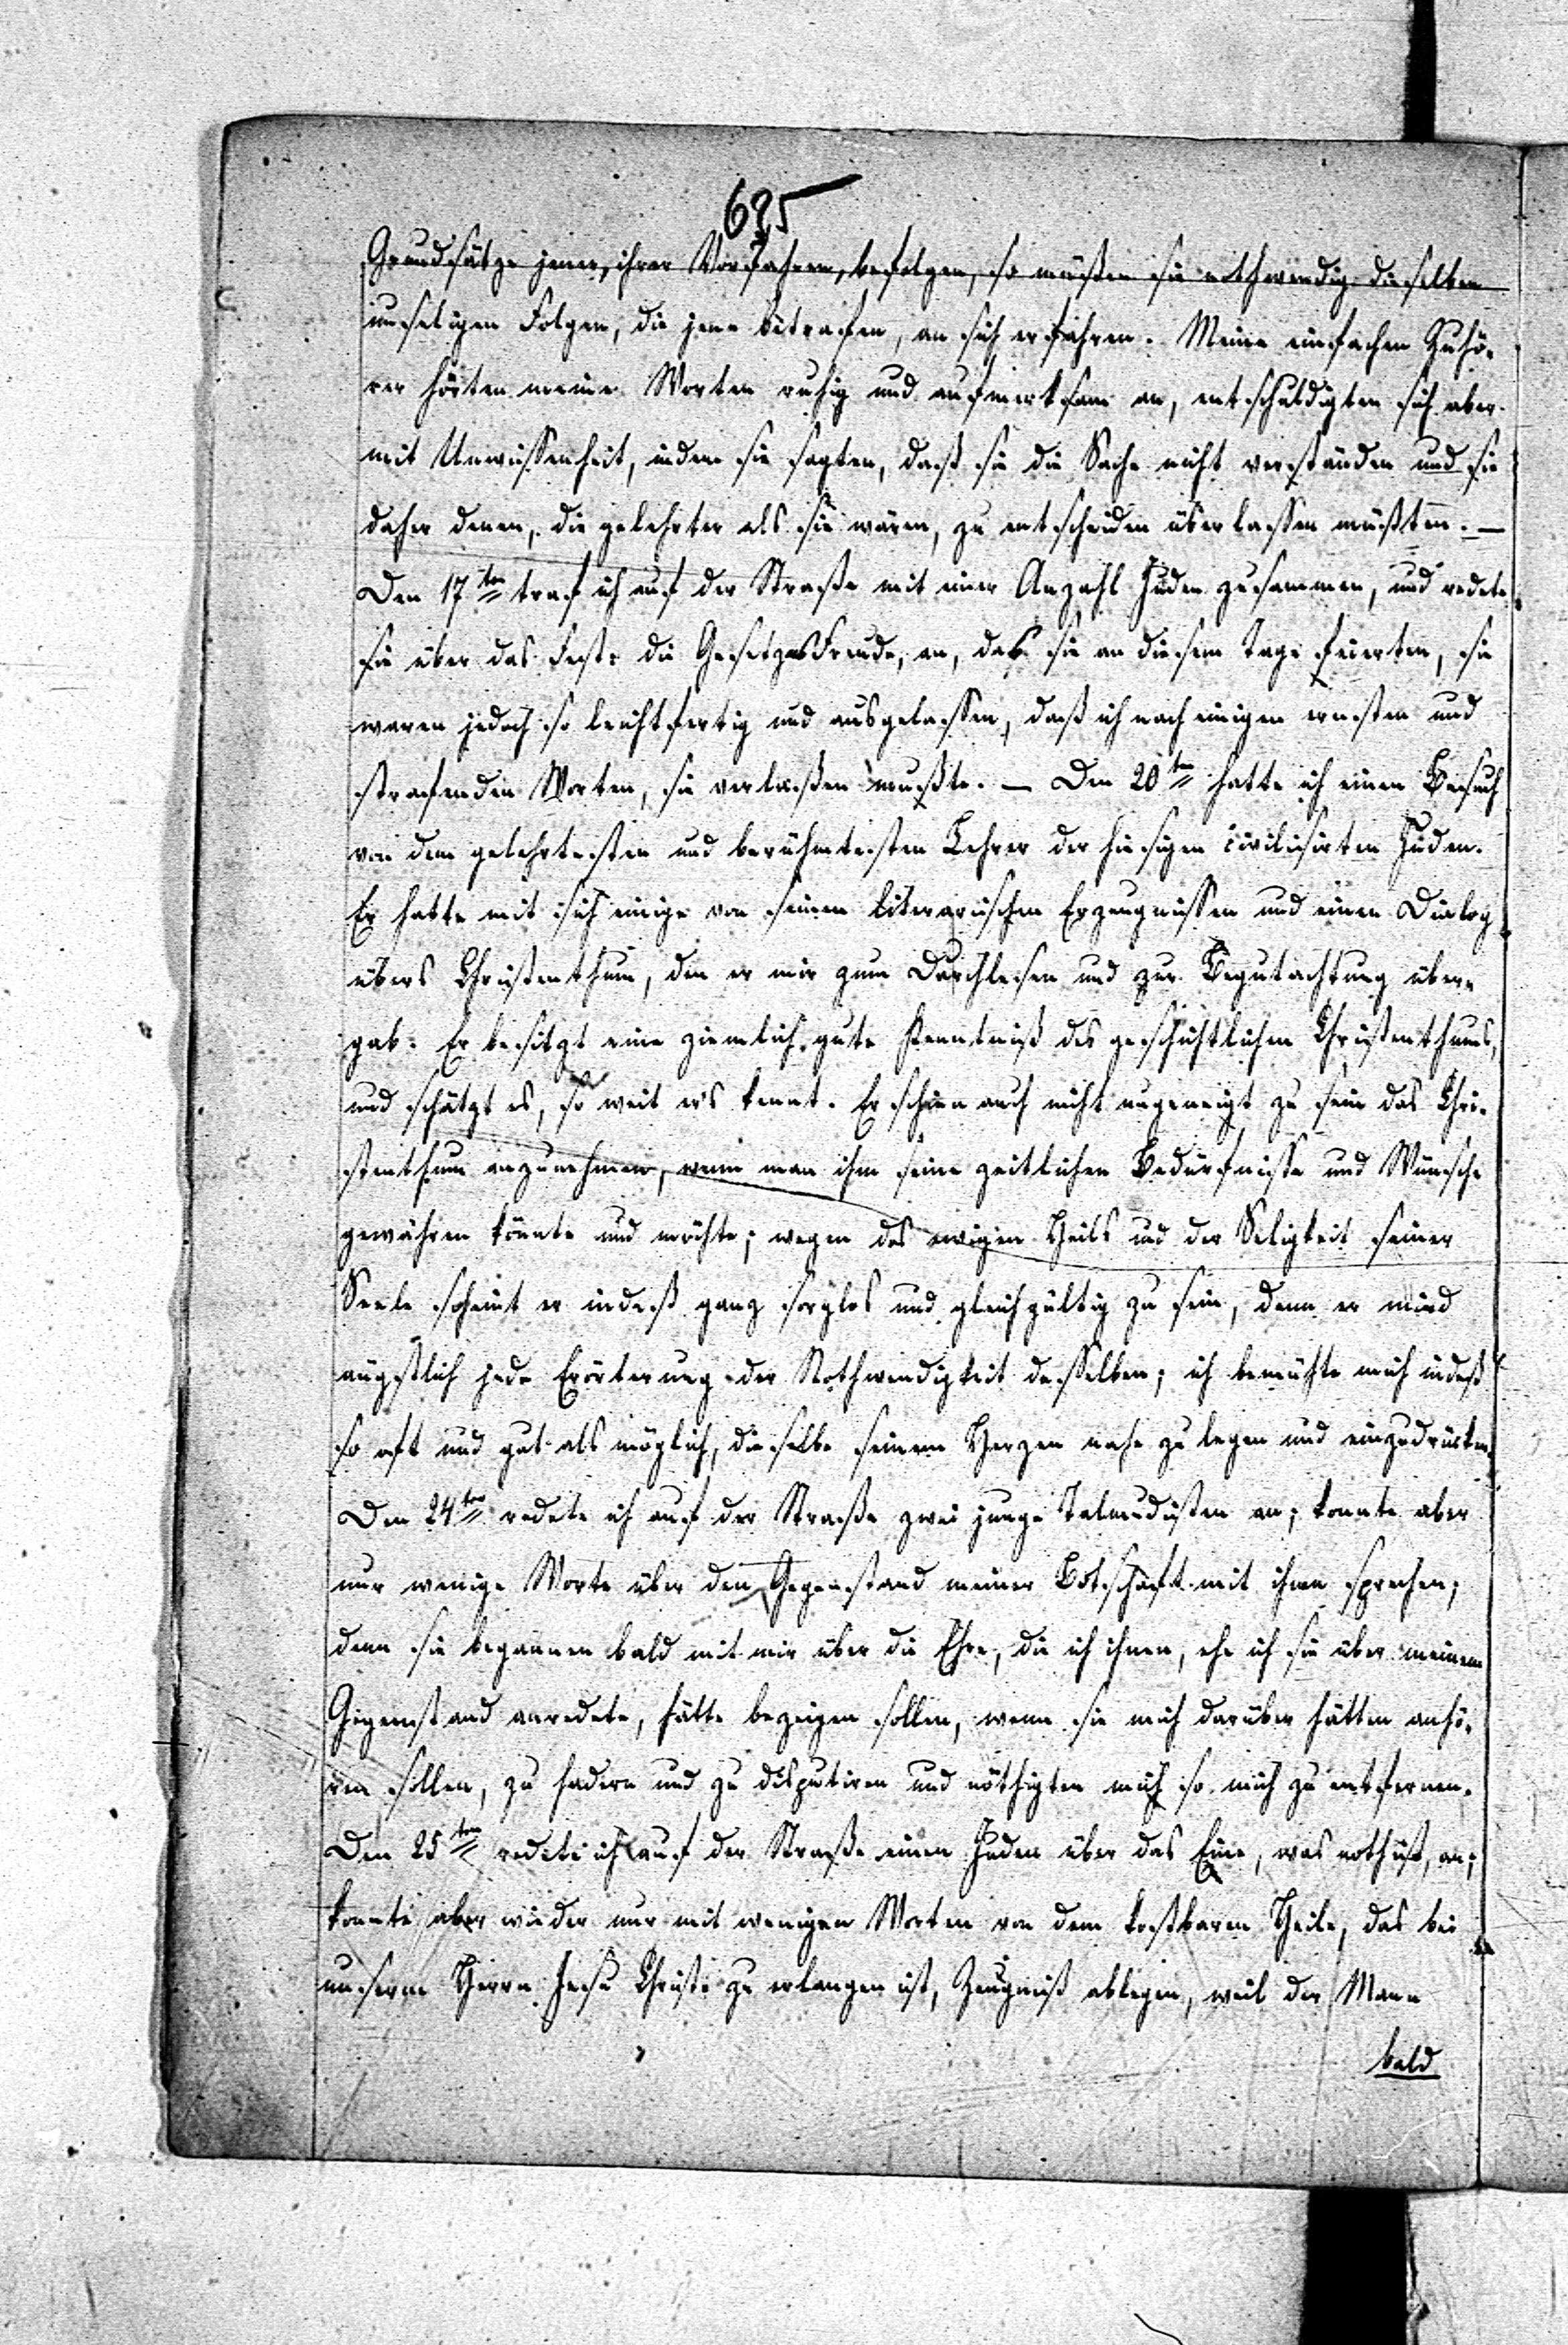 625
Grundsätze jener, ihrer Vorfahren, befolgen, so müßen sie nothwendig dieselben
unseligen Folgen, die jene betrafen, an sich erfahren. Meine einfachen Zuhö-
rer hörten meine Worten ruhig und aufmerksam an, entschuldigten sich aber
mit Unwissenheit, indem sie sagten, daß sie die Sache nicht verständen und sie
daher denen, die gelehrter als sie wären, zu entscheiden überlassen müßten. —
Den 17ten traf ich auf der Straße mit einer Anzahl Juden zusammen, und redete
sie über das Fest: die Gesetzesfreude, an, das sie an diesem Tage feierten, sie
waren jedoch so leichtfertig und ausgelassen, daß ich nach einigen ernsten und
strafenden Worten, sie verlaßen mußte. — Den 20ten hatte ich einen Besuch
von dem gelehrtesten und berühmtesten Lehrer der hiesigen civilisirten Juden.
Er hatte mit sich einige von seinen literarischen Erzeugnissen und einen Dialog
übers Christenthum, den er mir zum Durchlesen und zur Begutachtung über-
gab. Er besitzt eine ziemlich gute Kenntniß des geschichtlichen Christenthums,
und schätzt es, so weit er's kennt. Er schien auch nicht ungeneigt zu sein das Chri-
stenthum anzunehmen, wenn man ihm seine zeitlichen Bedürfnisse und Wünsche
gewähren könnte und möchte; wegen des ewigen Heils und der Seligkeit seiner
Seele scheint er indeß ganz sorglos und gleichgültig zu sein, denn er mied
ängstlich jede Erörterung der Nothwendigkeit desselben; ich bemühte mich indeß
so oft und gut als möglich, dieselbe seinem Herzen nahe zu legen und einzudrücken.
Den 24ten redete ich auf der Straße zwei junge Talmudisten an; konnte aber
nur wenige Worte über den Gegenstand meiner Botschaft mit ihnen sprechen;
denn sie begannen bald mit mir über die Ehre, die ich ihnen, ehe ich sie über meinen
Gegenstand anredete, hätte bezeigen sollen, wenn sie mich darüber hätten anhö-
ren sollen, zu hadern und zu disputiren und nöthigten mich so mich zu entfernen.
Den 25ten redete ich auf der Straße einen Juden über das Eine, was noth ist, an;
konnte aber wieder nur mit wenigen Worten von dem kostbaren Heile, das bei
unserm Herrn Jesu Christo zu erlangen ist, Zeugniß ablegen, weil der Mann
bald